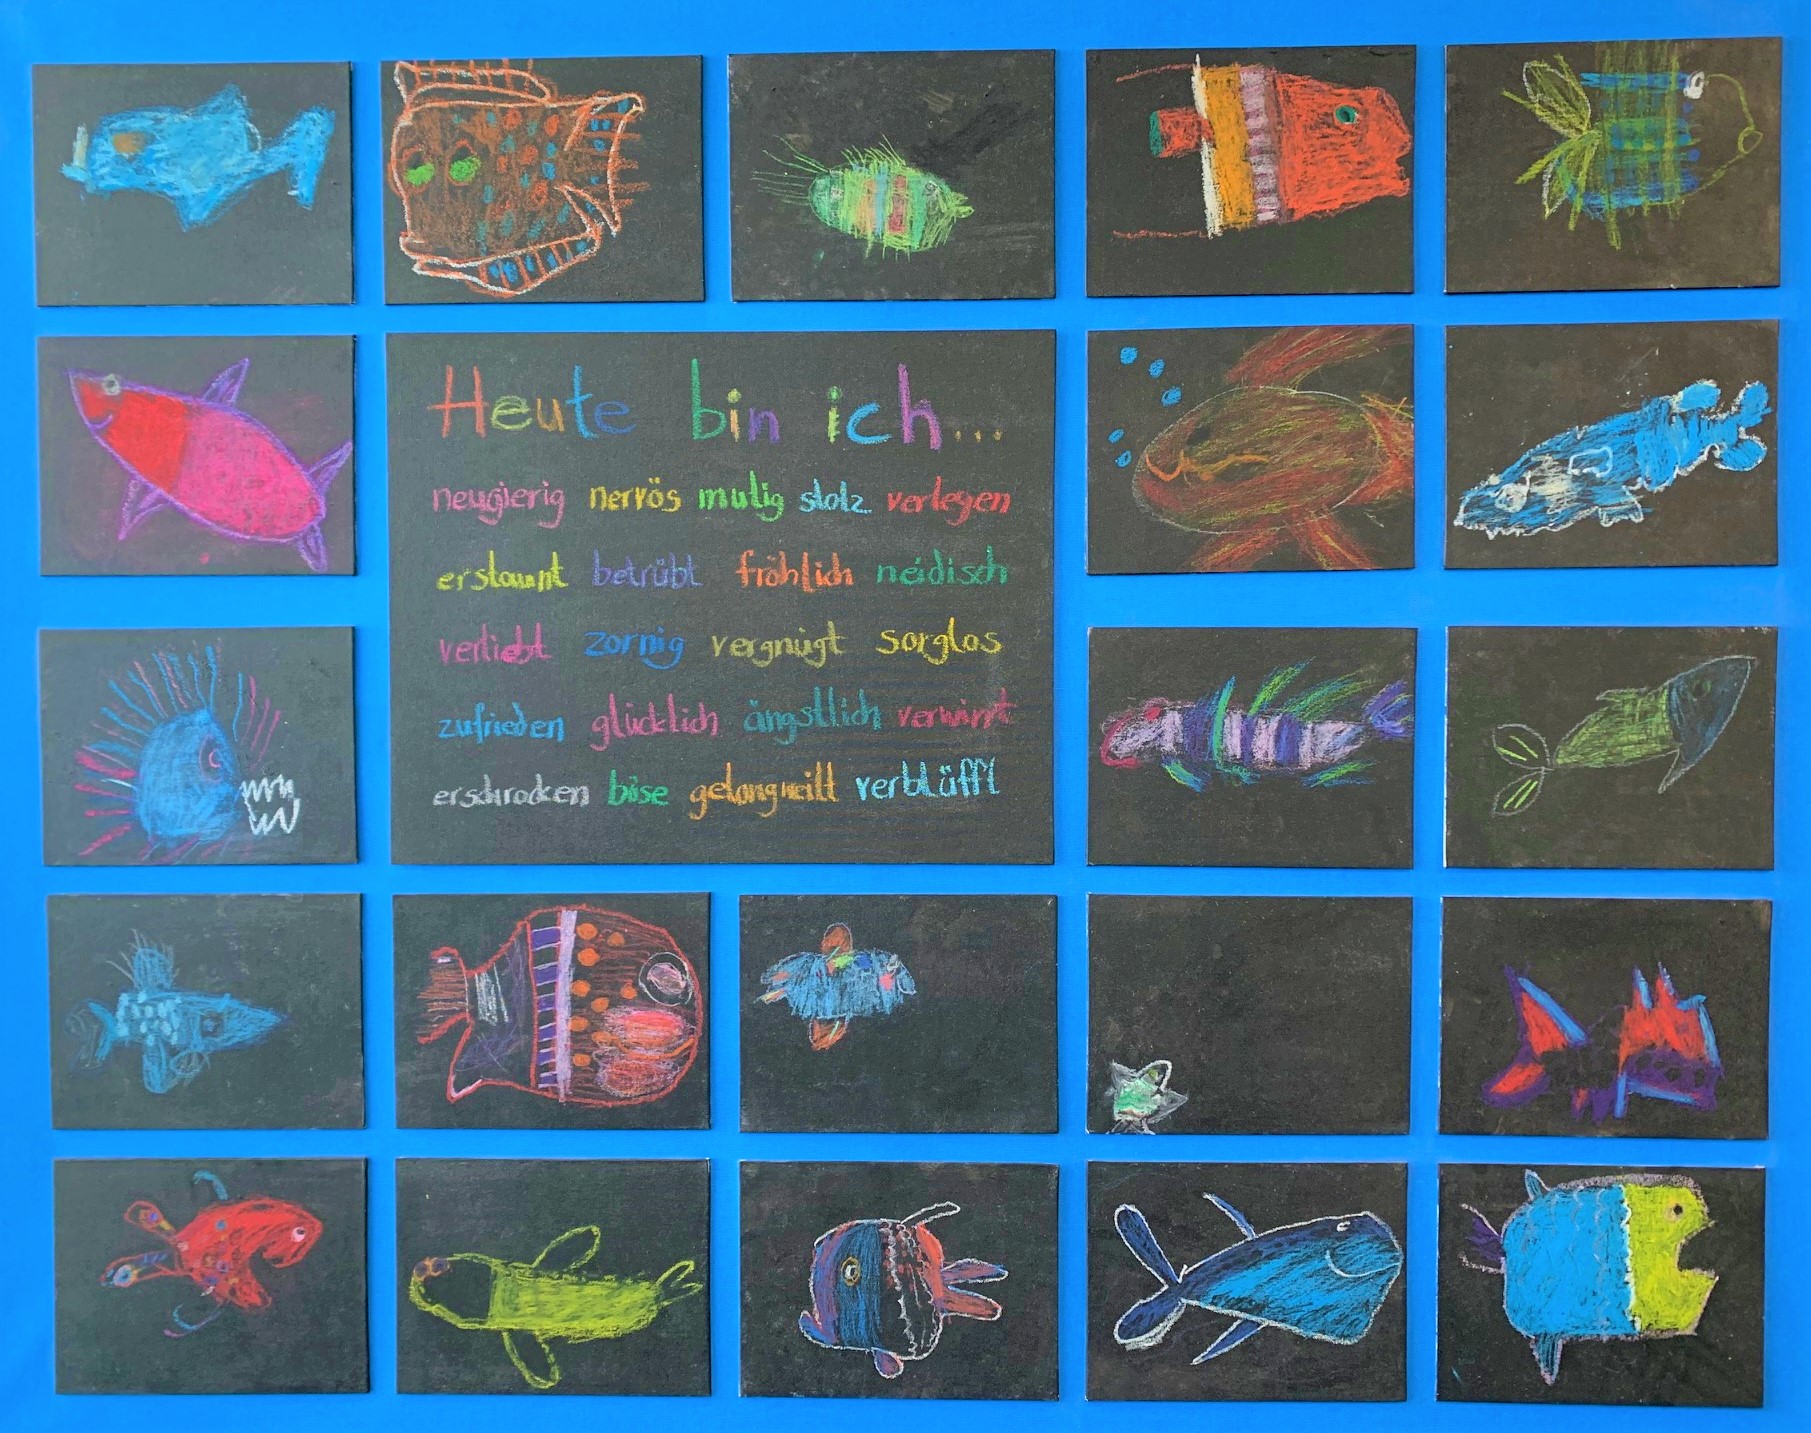 Heute bin ich...
neugierig nervös mutig stolz verlegen
erstaunt betrübt fröhlich neidisch
verliebt zornig vergnügt sorglos
zufrieden glücklich ängstlich verwirrt
erschrocken böse gelangweilt verblüfft